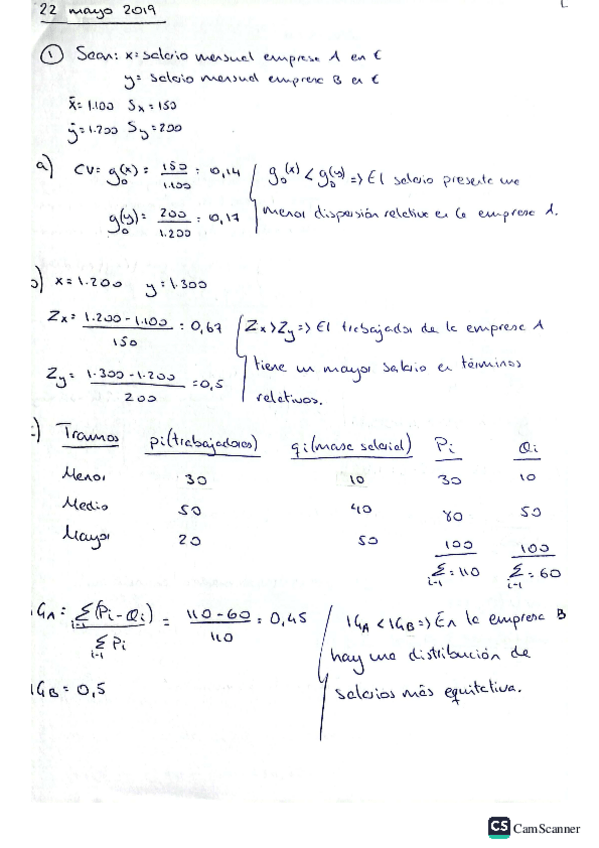 22 mayo 2019
① Sean: x= salario mensual empresa A en €
y= salario mensual empresa B en €
x̄= 1.100 Sx = 150
ȳ= 1.200 Sy = 200
a) CV = g₀(x) = 150/1.100 = 0,14 g₀(x) < g₀(y) => El salario presenta una
g₀(y) = 200/1.200 = 0,17 menor dispersión relativa en la empresa A.
b) x = 1.200 y = 1.300
Zx = 1.200 - 1.100 / 150 = 0,67 Zx > Zy => El trabajador de la empresa A
tiene un mayor salario en términos
Zy = 1.300 - 1.200 / 200 = 0,5 relativos.
c) Tramos pi (trabajadores) qi (masa salarial) Pi Qi
Menor 30 10 30 10
Medio 50 40 80 50
Mayor 20 50 100 100
Σ i-1 = 110 Σ i-1 = 60
IGA = Σ i-1 (Pi - Qi) / Σ i-1 Pi = 110 - 60 / 110 = 0,45 IGA < IGB => En la empresa B
hay una distribución de
IGB = 0,5 salarios más equitativa.
CS CamScanner